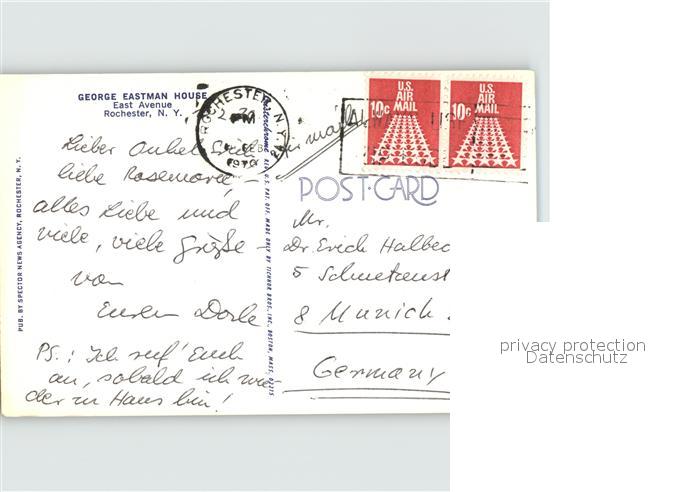 GEORGE EASTMAN HOUSE
East Avenue
Rochester, N. Y.
Lieber Onkel Erich,
liebe Rosemarie, –
alles Liebe und
viele, viele Grüße –
von
Euren Dorle
PS.: Ich ruf' Euch
an, sobald ich wie-
der zu Haus bin!
PUB. BY SPECTOR NEWS AGENCY, ROCHESTER, N. Y.
REG. U.S. PAT. OFF. MADE ONLY BY TICHNOR BROS., INC., BOSTON, MASS. 02215
ROCHESTER, N.Y.
PM
1970
air mail
U.S.
AIR
MAIL
10c
U.S.
AIR
MAIL
10c
POST CARD
Mr.
Dr. Erich Halbec
5
8 Munich
Germany
privacy protection
Datenschutz